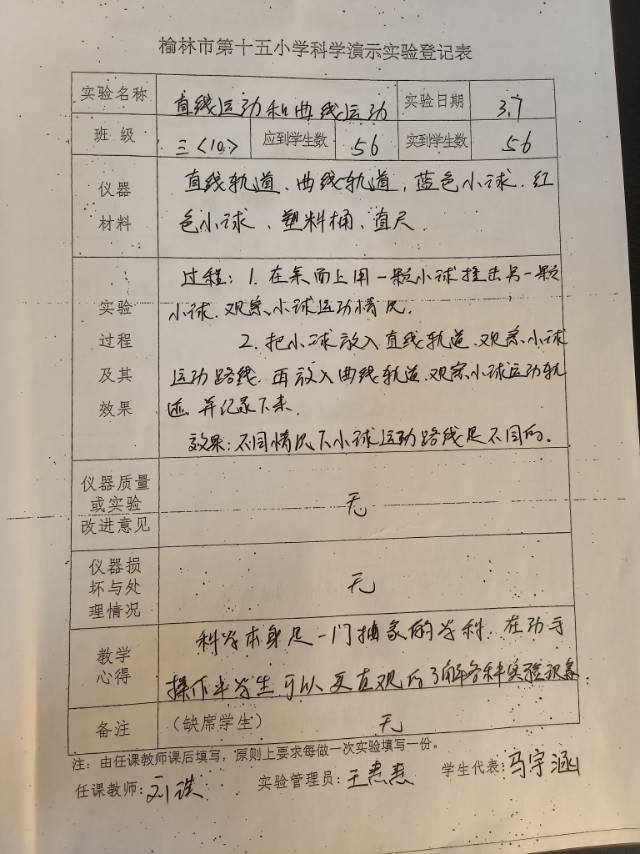 榆林市第十五小学科学演示实验登记表
实验名称 直线运动和曲线运动 实验日期 3.7
班 级 三〈10〉 应到学生数 56 实到学生数 56
仪器 直线轨道、曲线轨道,蓝色小球、红
材料 色小球、塑料桶、直尺.
过程:1.在桌面上用一颗小球撞击另一颗
实验 小球.观察小球运动情况.
过程 2.把小球放入直线轨道.观察小球
及其 运动路线.再放入曲线轨道.观察小球运动轨
效果 迹 并记录下来.
效果:不同情况下小球运动路线是不同的。
仪器质量
或实验 无
改进意见
仪器损
坏与处 无
理情况
教学 科学本身是一门抽象的学科.在动手
心得 操作中学生可以更直观的了解各种实验现象.
备注 (缺席学生) 无
注:由任课教师课后填写,原则上要求每做一次实验填写一份。
任课教师:刘 实验管理员:王 学生代表:马宇涵